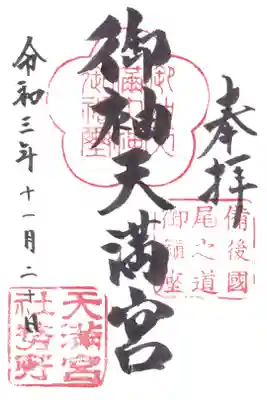 奉拝
備後國
尾之道
御鎮座
御袖天満宮
天満宮
社務所
令和三年十一月二十日